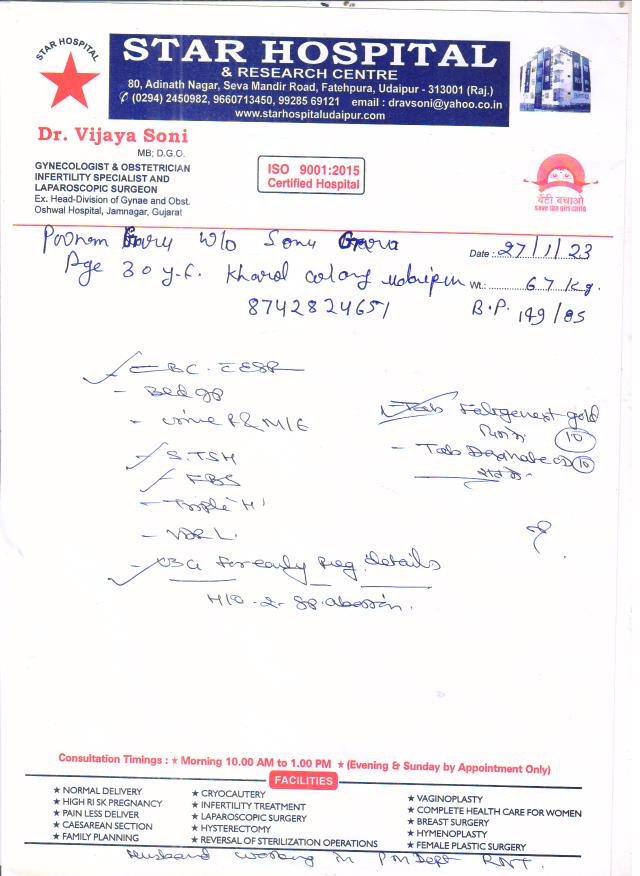 STAR HOSPITAL
STAR HOSPITAL
& RESEARCH CENTRE
80, Adinath Nagar, Seva Mandir Road, Fatehpura, Udaipur - 313001 (Raj.)
(0294) 2450982, 9660713450, 99285 69121 email : dravsoni@yahoo.co.in
www.starhospitaludaipur.com
Dr. Vijaya Soni
MB; D.G.O.
GYNECOLOGIST & OBSTETRICIAN
INFERTILITY SPECIALIST AND
LAPAROSCOPIC SURGEON
Ex. Head-Division of Gynae and Obst.
Oshwal Hospital, Jamnagar, Gujarat
ISO 9001:2015
Certified Hospital
बेटी बचाओ
save the girl child
Poonam W/o Sonu
Date : 27/1/23
Age 30 y.f. Kharol colony udaipur
Wt.: 67 kg.
8742824651
B.P. 149/85
CBC. ESR
- Bld gp
- urine R & M/E
S. TSH
FBS
- Triple H
- VDRL.
- USG for early Preg. details
H/O - 2 - sp. abortion.
Tab gold
10
- Tab 10
Consultation Timings : ★ Morning 10.00 AM to 1.00 PM ★ (Evening & Sunday by Appointment Only)
FACILITIES
★ NORMAL DELIVERY
★ HIGH RISK PREGNANCY
★ PAIN LESS DELIVER
★ CAESAREAN SECTION
★ FAMILY PLANNING
★ CRYOCAUTERY
★ INFERTILITY TREATMENT
★ LAPAROSCOPIC SURGERY
★ HYSTERECTOMY
★ REVERSAL OF STERILIZATION OPERATIONS
★ VAGINOPLASTY
★ COMPLETE HEALTH CARE FOR WOMEN
★ BREAST SURGERY
★ HYMENOPLASTY
★ FEMALE PLASTIC SURGERY
Husband working in PM Dept RNT.